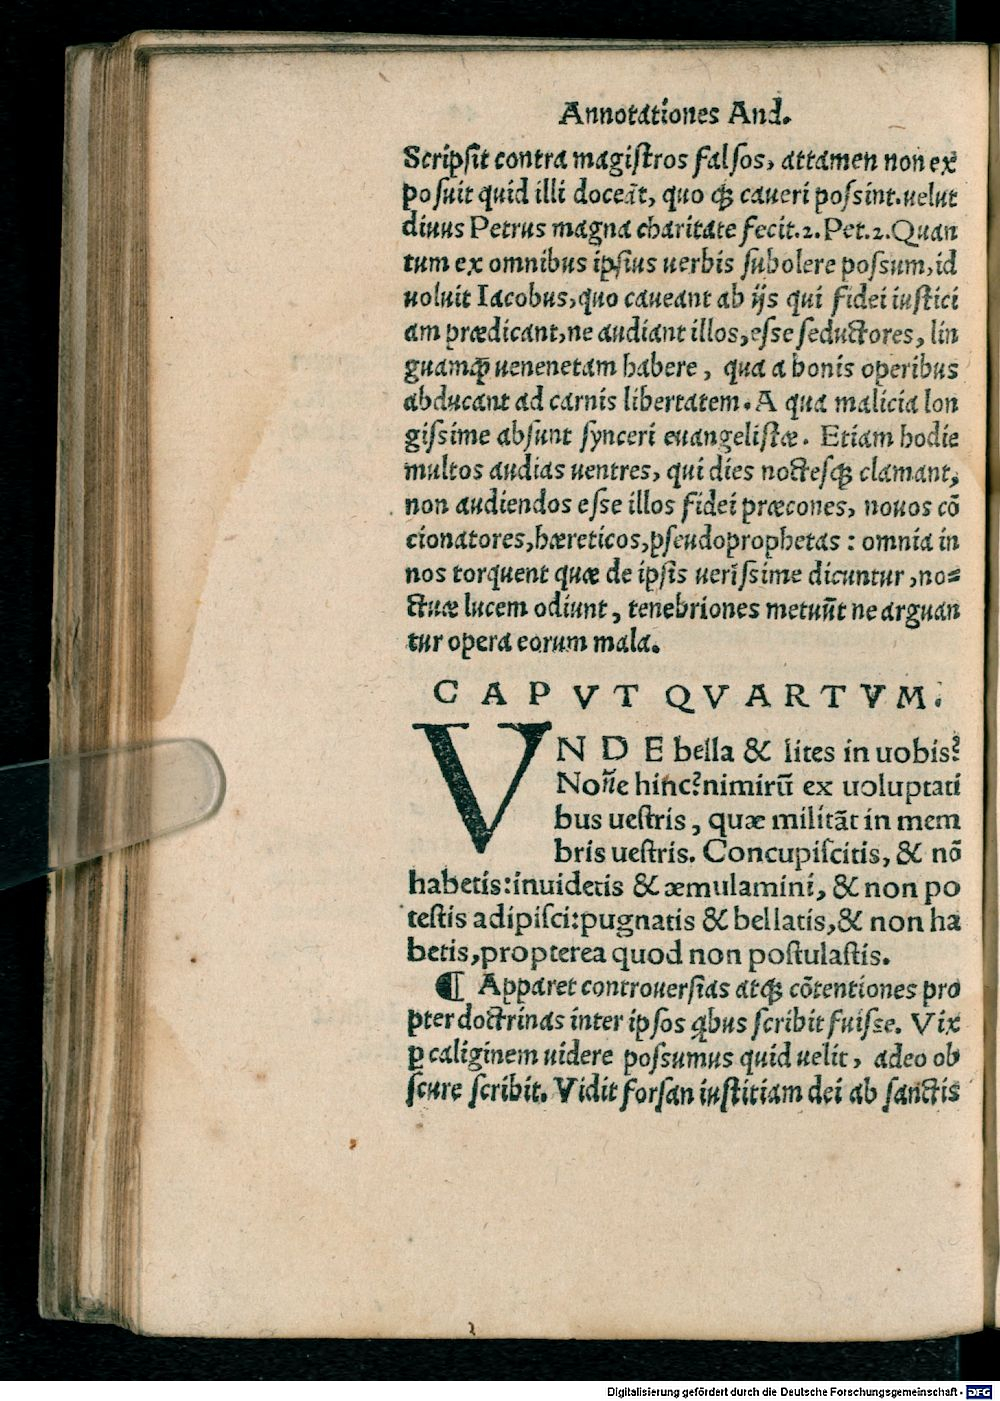 Annotationes And.
Scripsit contra magistros falsos, attamen non ex
posuit quid illi doceāt, quo qȝ caueri possint. uelut
diuus Petrus magna charitate fecit. 2. Pet. 2. Quan
tum ex omnibus ipsius uerbis subolere possum, id
uoluit Iacobus, quo caueant ab ijs qui fidei iustici
am prædicant, ne audiant illos, esse seductores, lin
guamqȝ uenenetam habere, qua a bonis operibus
abducant ad carnis libertatem. A qua malicia lon
gissime absunt synceri euangelistæ. Etiam hodie
multos audias uentres, qui dies noctesqȝ clamant,
non audiendos esse illos fidei præcones, nouos cō
cionatores, hæreticos, pseudoprophetas : omnia in
nos torquent quæ de ipsis uerissime dicuntur, no⸗
ctuæ lucem odiunt, tenebriones metuūt ne arguan
tur opera eorum mala.
CAPVT QVARTVM.
VNDE bella & lites in uobis?
Noñe hinc? nimirū ex uoluptati
bus uestris, quæ militāt in mem
bris uestris. Concupiscitis, & nō
habetis: inuidetis & æmulamini, & non po
testis adipisci: pugnatis & bellatis, & non ha
betis, propterea quod non postulastis.
¶ Apparet controuersias atqȝ cōtentiones pro
pter doctrinas inter ipsos q̇bus scribit fuisse. Vix
ꝑ caliginem uidere possumus quid uelit, adeo ob
scure scribit. Vidit forsan iustitiam dei ab sanctis
Digitalisierung gefördert durch die Deutsche Forschungsgemeinschaft - DFG